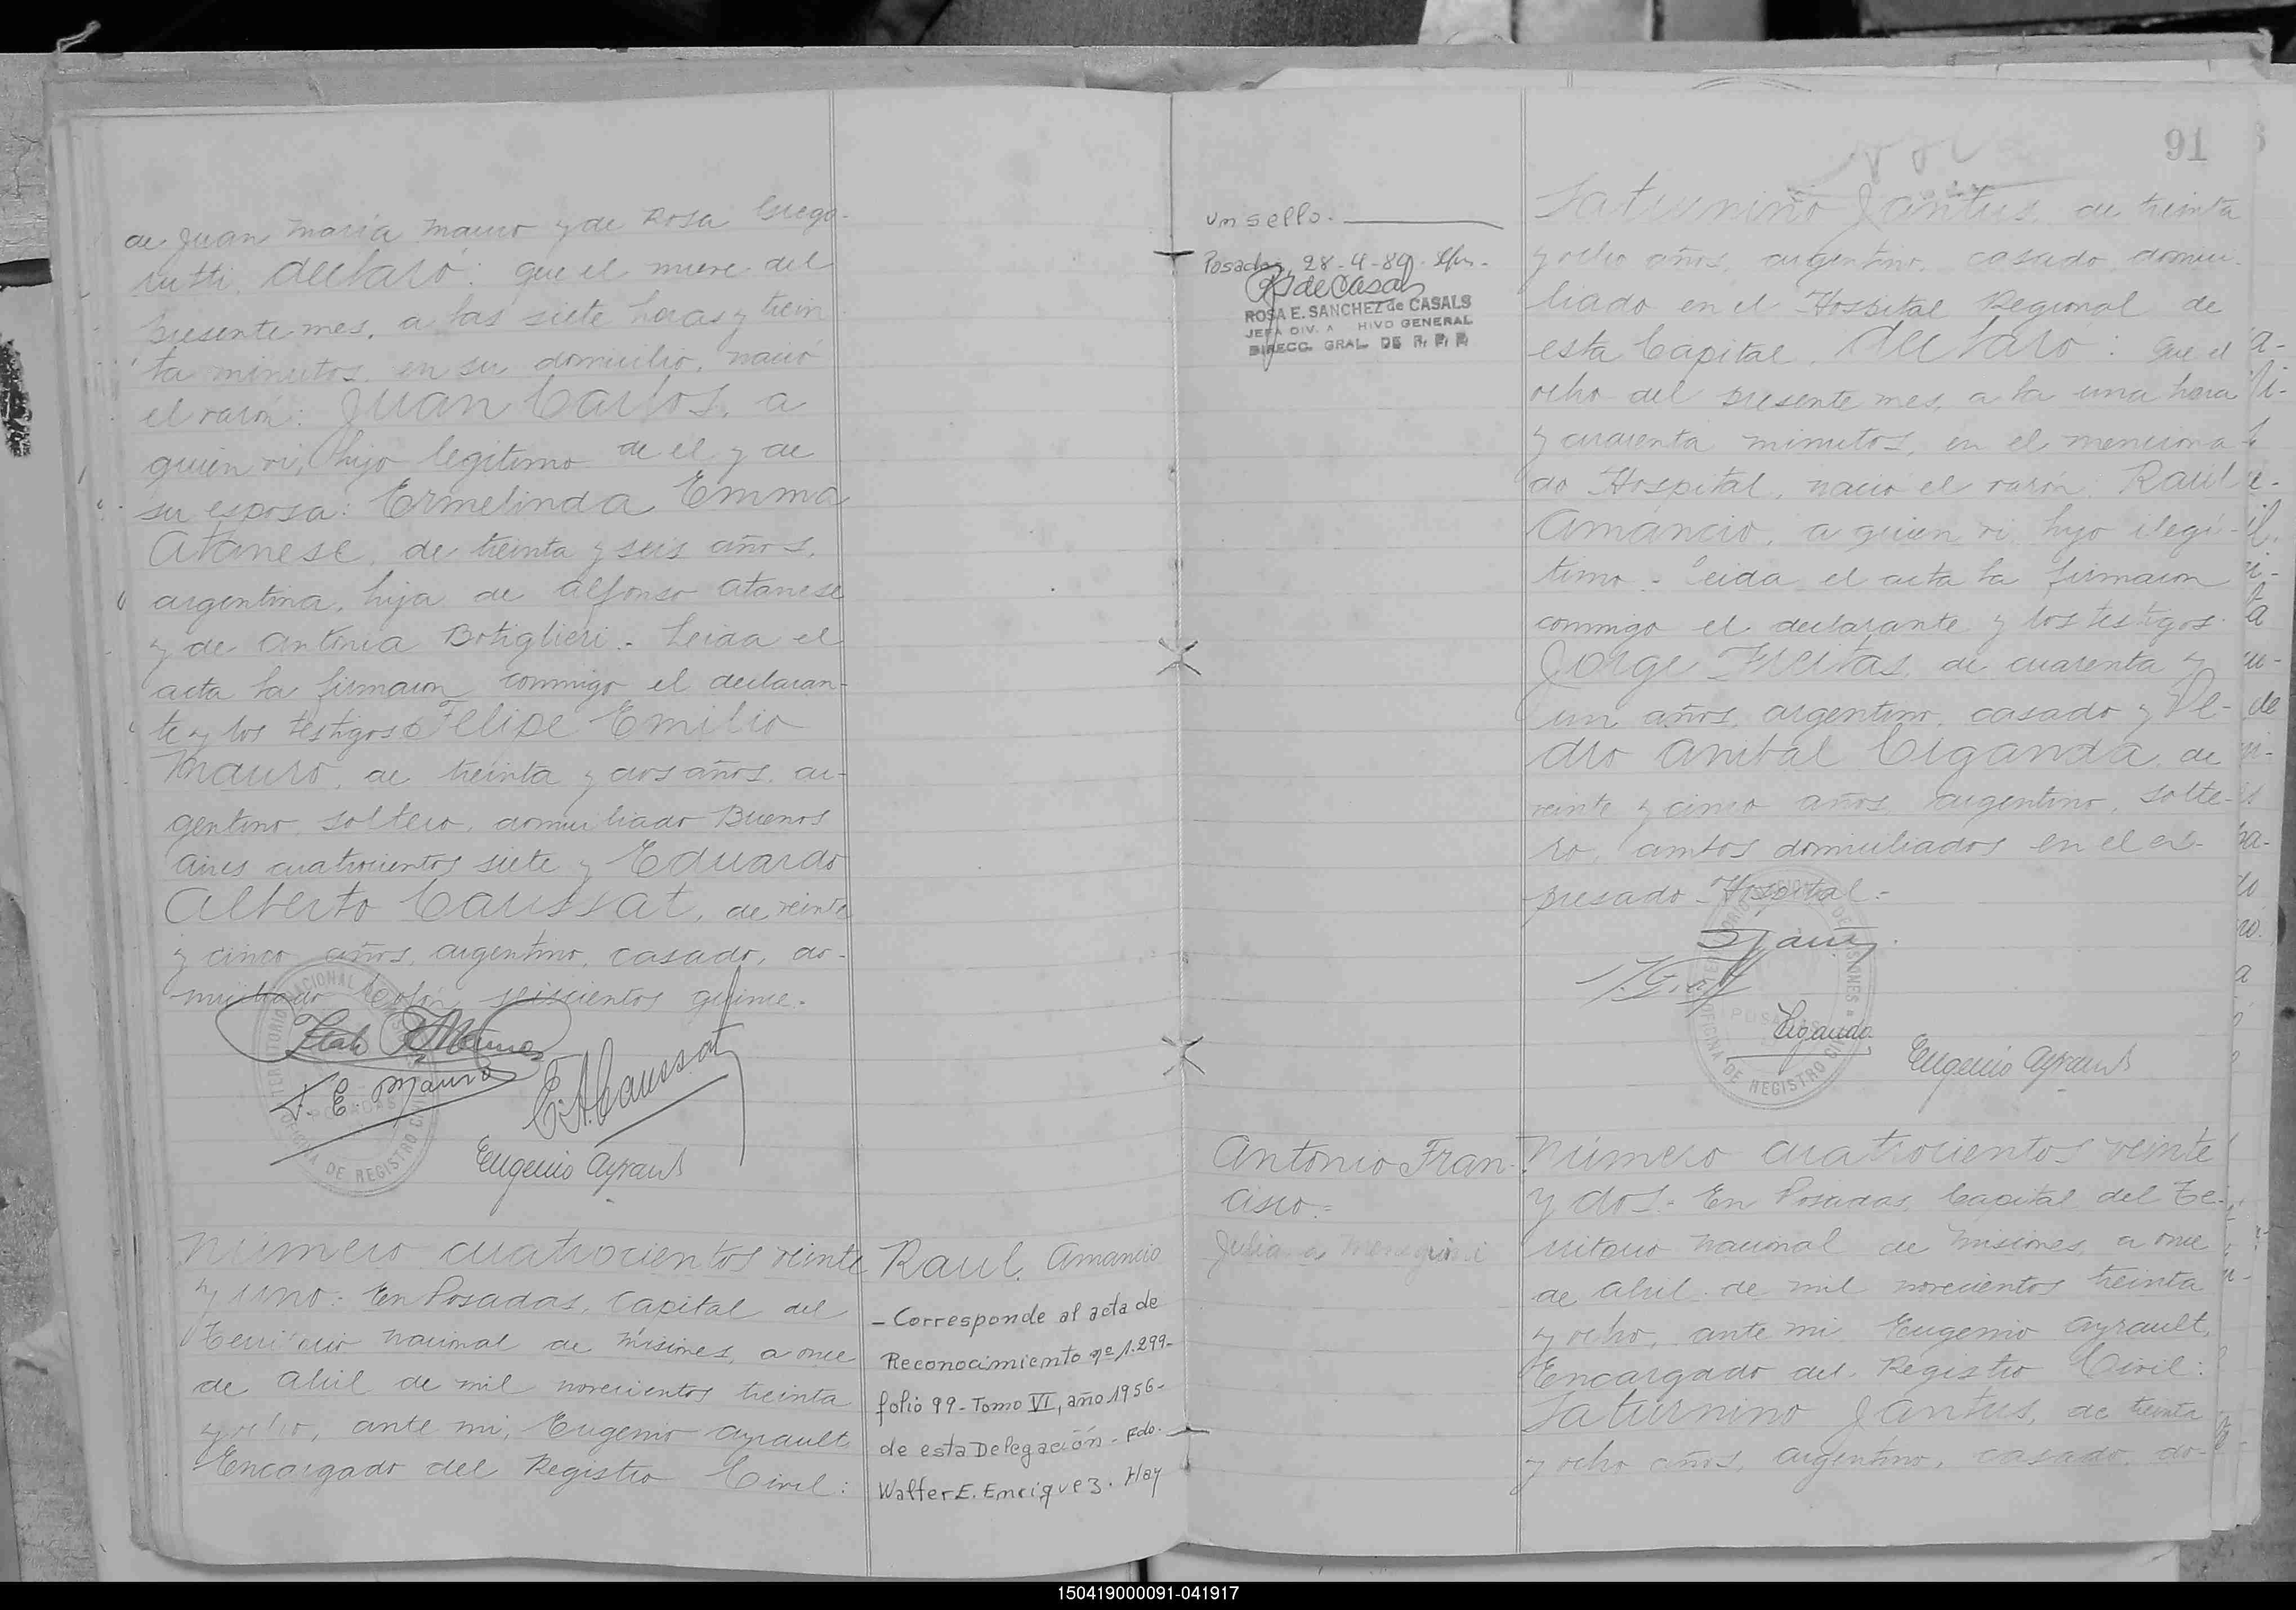 de Juan María Mauro y de Rosa Grego-
rutti, declaró: que el nueve del
presente mes, a las siete horas y trein
ta minutos, en su domicilio, nació
el varón: Juan Carlos, a
quien vi, hijo legítimo de el y de
su esposa: Ermelinda Emma
Atanese, de treinta y seis años,
argentina, hija de Alfonso Atanese
y de Antonia Botiglieri.- Leida el
acta la firmaron conmigo el declaran-
te y los testigos Felipe Emilio
Mauro, de treinta y dos años, ar-
gentino, soltero, domiciliado Buenos
Aires cuatrocientos siete y Eduardo
Alberto Caussat, de veinte
y cinco años, argentino, casado, do-
miciliado Colón seiscientos quince.-
F. E. Mauro
E. A. Caussat
Eugenio Ayrault
TERRITORIO NACIONAL DE MISIONES
POSADAS
OFICINA DE REGISTRO CIVIL
Número cuatrocientos veinte
y uno: En Posadas, Capital del
Territorio Nacional de Misiones, a once
de abril de mil novecientos treinta
y ocho, ante mi, Eugenio Ayrault,
Encargado del Registro Civil:
Raul Amancio
- Corresponde al acta de
Reconocimiento nº 1.299-
folio 99- Tomo VI, año 1956-
de esta Delegación- Fdo.
Walter E. Enriquez. Hay
un sello.
Posadas, 28-4-89.
R S de Casals
ROSA E. SANCHEZ de CASALS
JEFA DIV. A HIVO GENERAL
DIRECC. GRAL DE R. P. P.
91
Saturnino Jantus, de treinta
y ocho años, argentino, casado, domici-
liado en el Hospital Regional de
esta Capital, declaró: Que el
ocho del presente mes, a la una hora
y cuarenta minutos, en el menciona
do Hospital, nació el varón: Raúl
Amancio, a quien vi, hijo ilegí-
timo.- Leida el acta la firmaron
conmigo el declarante y los testigos
Jorge Freitas, de cuarenta y
un años, argentino, casado y Pe-
dro Anibal Ciganda, de
veinte y cinco años, argentino, solte-
ro, ambos domiciliados en el ex-
presado Hospital.-
Ciganda
Eugenio Ayrault
TERRITORIO NACIONAL DE MISIONES
POSADAS
OFICINA DE REGISTRO CIVIL
Antonio Fran-
cisco.=
Número cuatrocientos veinte
y dos.- En Posadas, Capital del Te-
rritorio Nacional de Misiones, a once
de abril de mil novecientos treinta
y ocho, ante mi Eugenio Ayrault,
Encargado del Registro Civil:
Saturnino Jantus, de treinta
y ocho años, argentino, casado, do-
150419000091-041917